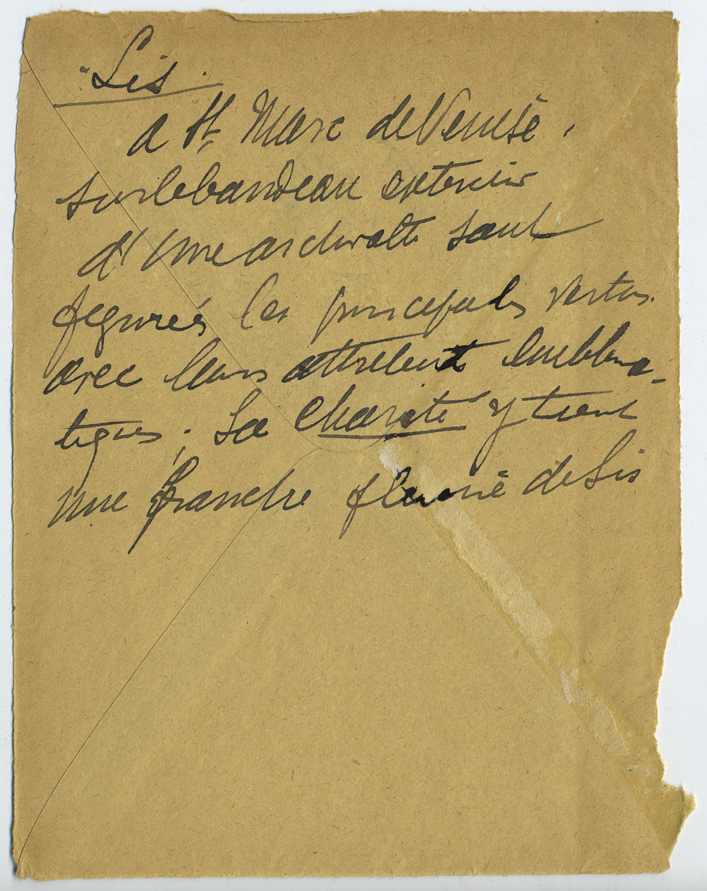 "Lis".
a St Marc de Venise,
sur le bandeau exterieur
d'une archivolte sont
figurés les principales vertus
avec leurs attributs emblema-
tiques ; La Charité y tient
une branche fleurie de Lis